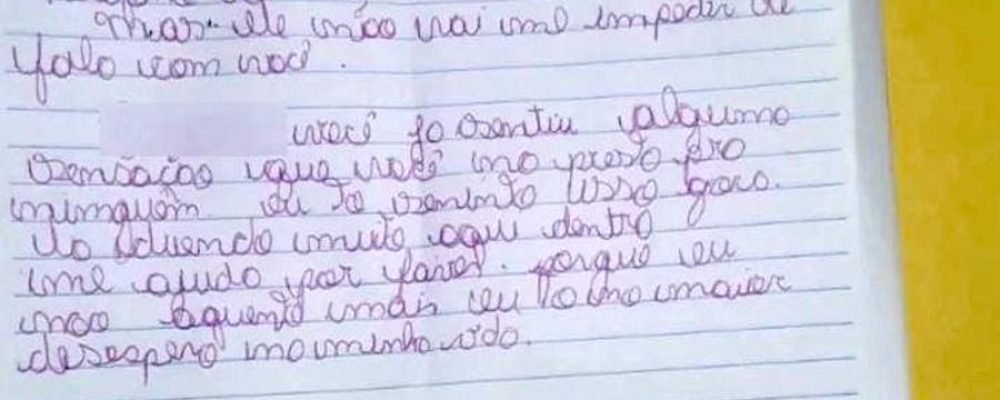 mas ele não vai me impedir de
falo com você.
você ja sentiu alguma
sensação que você não presta pra
ninguém eu to senindo isso gora.
to duendo muito aqui dentro
me ajuda por favor. porque eu
não aguento mais eu to no maior
desespero na minha vida.